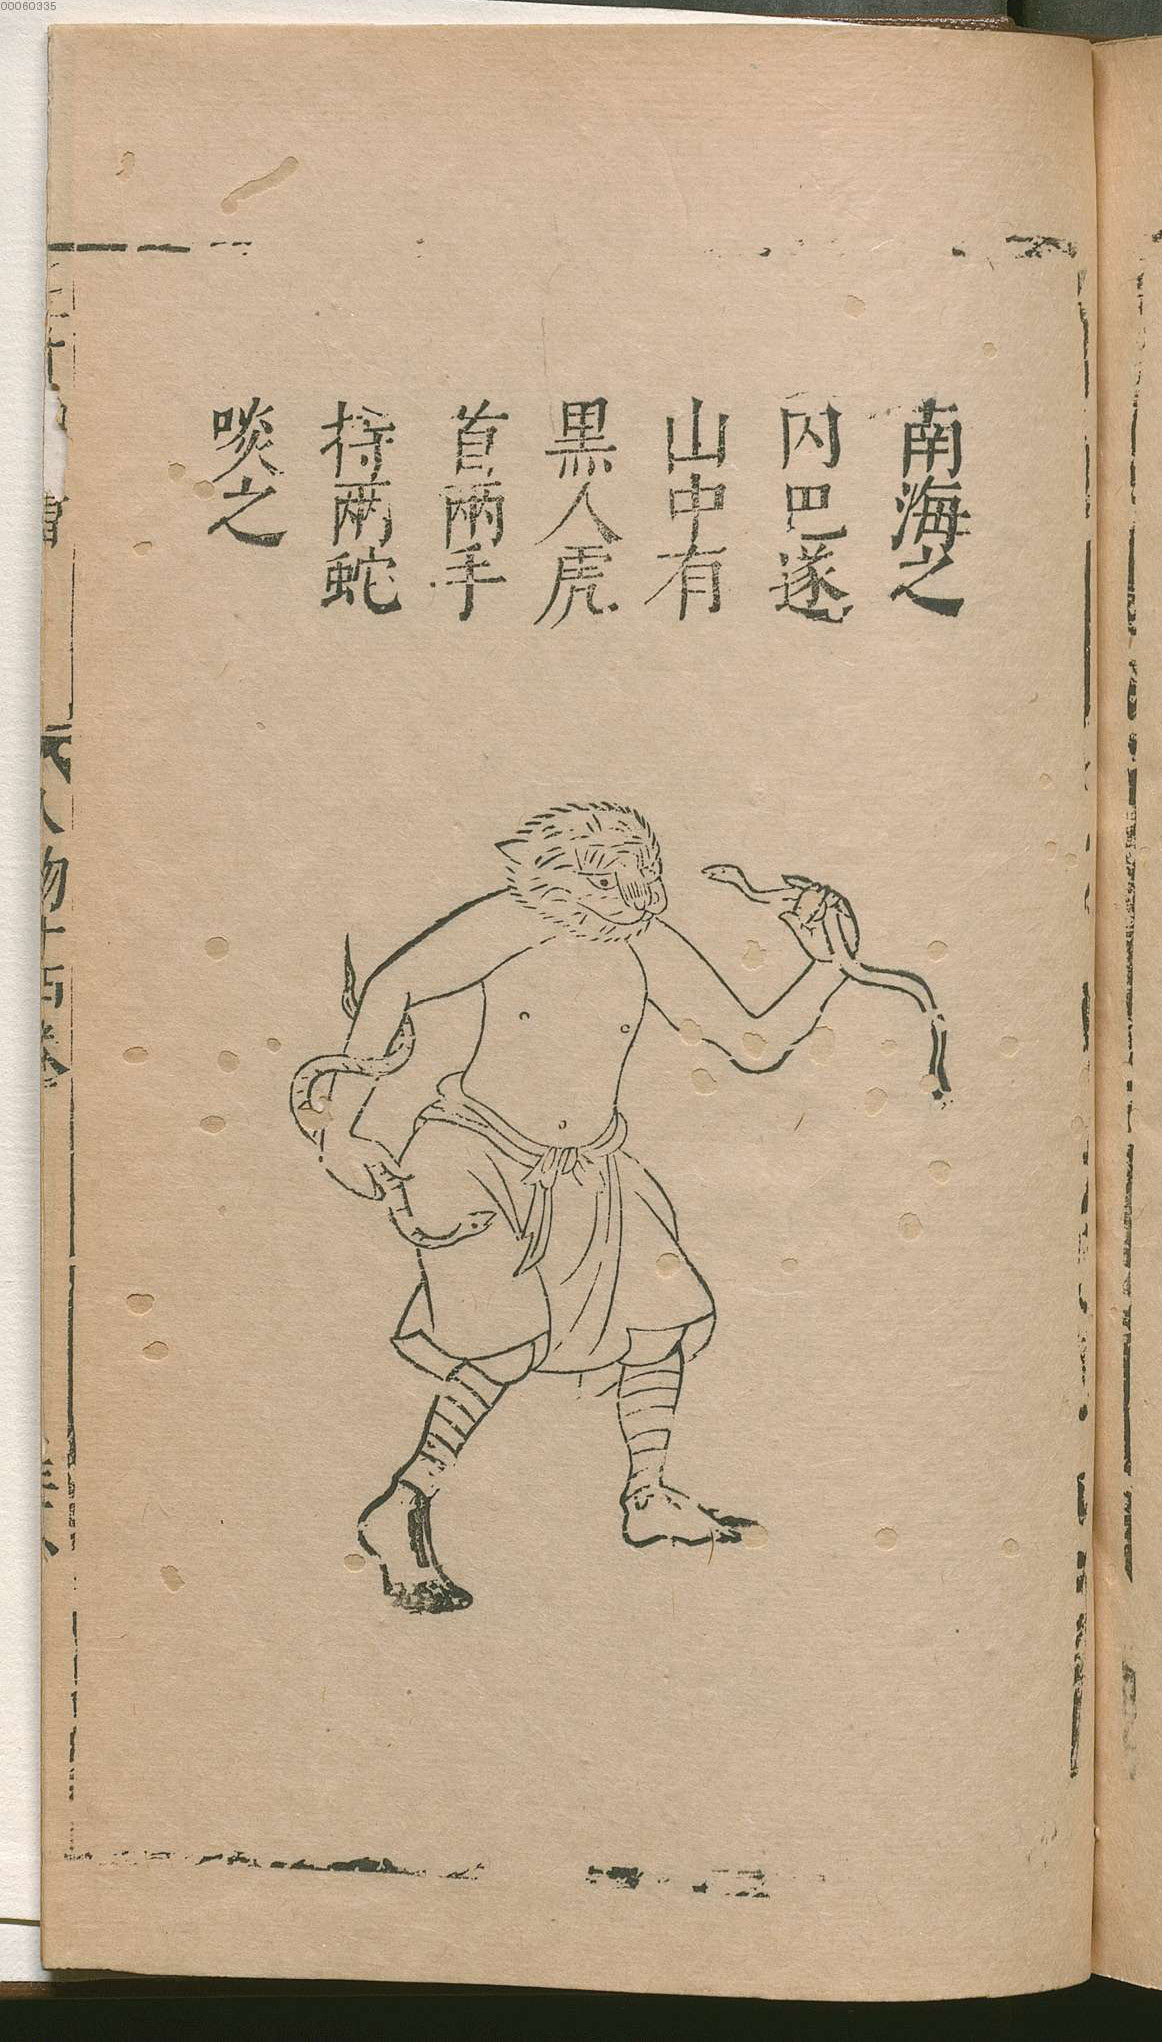 00060335
南海之
內巴遂
山中有
黒人虎
首兩手
持兩蛇
啖之
人物十四卷